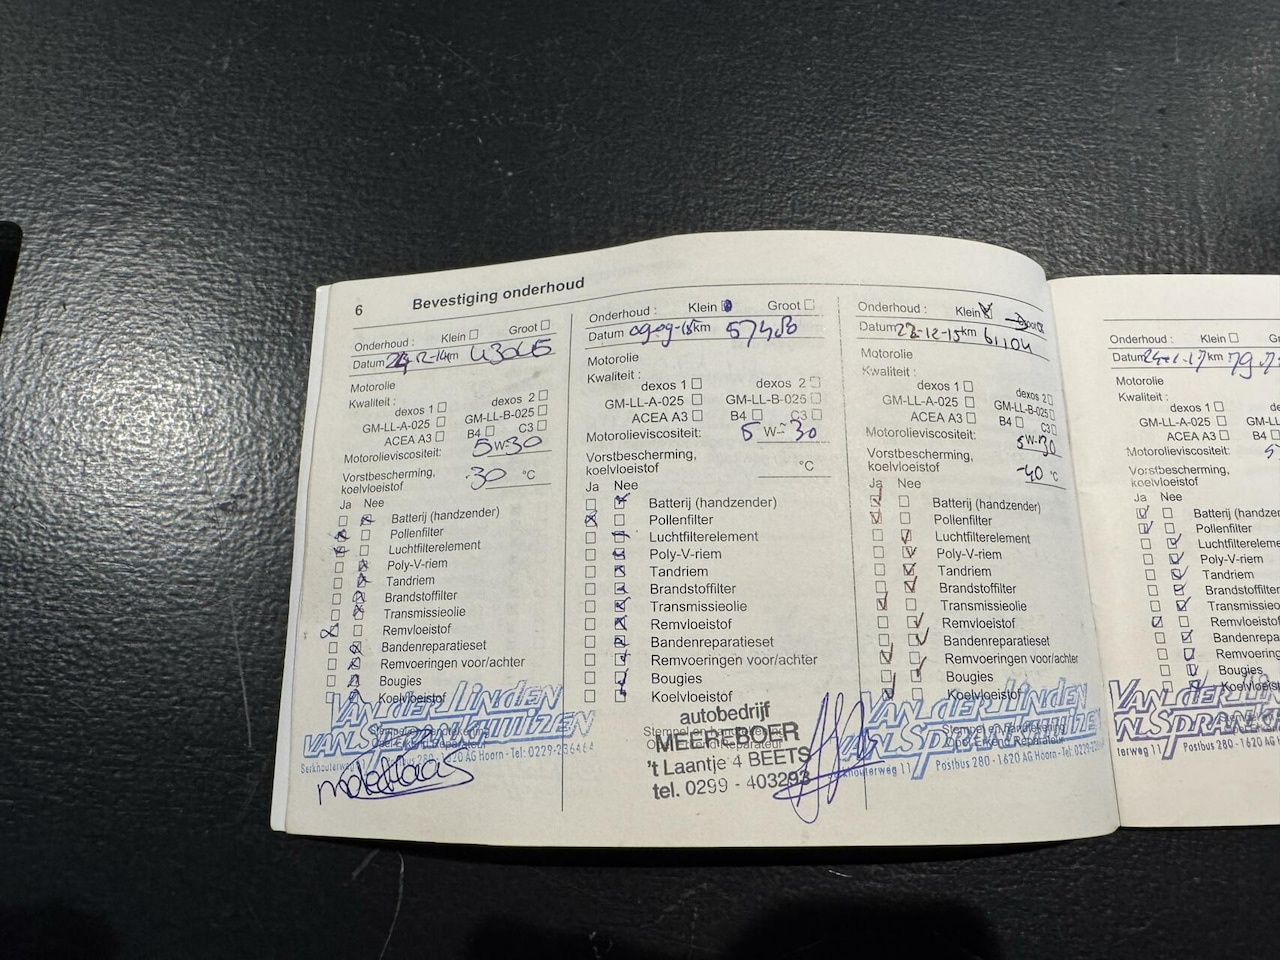 6 Bevestiging onderhoud
Onderhoud : Klein Groot
Datum km
Motorolie
Kwaliteit :
dexos 1 dexos 2
GM-LL-A-025 GM-LL-B-025
ACEA A3 B4 C3
Motorolieviscositeit: 5W-30
Vorstbescherming,
koelvloeistof -30 °C
Ja Nee
Batterij (handzender)
Pollenfilter
Luchtfilterelement
Poly-V-riem
Tandriem
Brandstoffilter
Transmissieolie
Remvloeistof
Bandenreparatieset
Remvoeringen voor/achter
Bougies
Koelvloeistof
VAN der Linden
VAN Sprankhuizen
Stempel en handtekening
Opel Erkend Reparateur
Postbus 280 - 1620 AG Hoorn - Tel: 0229-
Onderhoud : Klein Groot
Datum 09-09-15 km
Motorolie
Kwaliteit :
dexos 1 dexos 2
GM-LL-A-025 GM-LL-B-025
ACEA A3 B4 C3
Motorolieviscositeit: 5 W- 30
Vorstbescherming,
koelvloeistof °C
Ja Nee
Batterij (handzender)
Pollenfilter
Luchtfilterelement
Poly-V-riem
Tandriem
Brandstoffilter
Transmissieolie
Remvloeistof
Bandenreparatieset
Remvoeringen voor/achter
Bougies
Koelvloeistof
autobedrijf
MEEREBOER
't Laantje 4 BEETS
tel. 0299 - 403293
Onderhoud : Klein
Datum km 61104
Motorolie
Kwaliteit :
dexos 1 dexos 2
GM-LL-A-025 GM-LL-B-025
ACEA A3 B4 C3
Motorolieviscositeit: 5W-30
Vorstbescherming,
koelvloeistof -40 °C
Ja Nee
Batterij (handzender)
Pollenfilter
Luchtfilterelement
Poly-V-riem
Tandriem
Brandstoffilter
Transmissieolie
Remvloeistof
Bandenreparatieset
Remvoeringen voor/achter
Bougies
Koelvloeistof
VAN der Linden
VAN Sprankhuizen
Stempel en handtekening
Opel Erkend Reparateur
Postbus 280 - 1620 AG Hoorn - Tel: 0229-
Onderhoud : Klein
Datum km
Motorolie
Kwaliteit :
dexos 1
GM-LL-A-025 GM-LL
ACEA A3 B4
Motorolieviscositeit:
Vorstbescherming,
koelvloeistof
Ja Nee
Batterij (handzen
Pollenfilter
Luchtfiltereleme
Poly-V-riem
Tandriem
Brandstoffilter
Transmissieo
Remvloeistof
Bandenrepara
Remvoering
Bougies
Koelvloeistof
VAN der Lin
Sprank
terweg 11 Postbus 280 - 1620